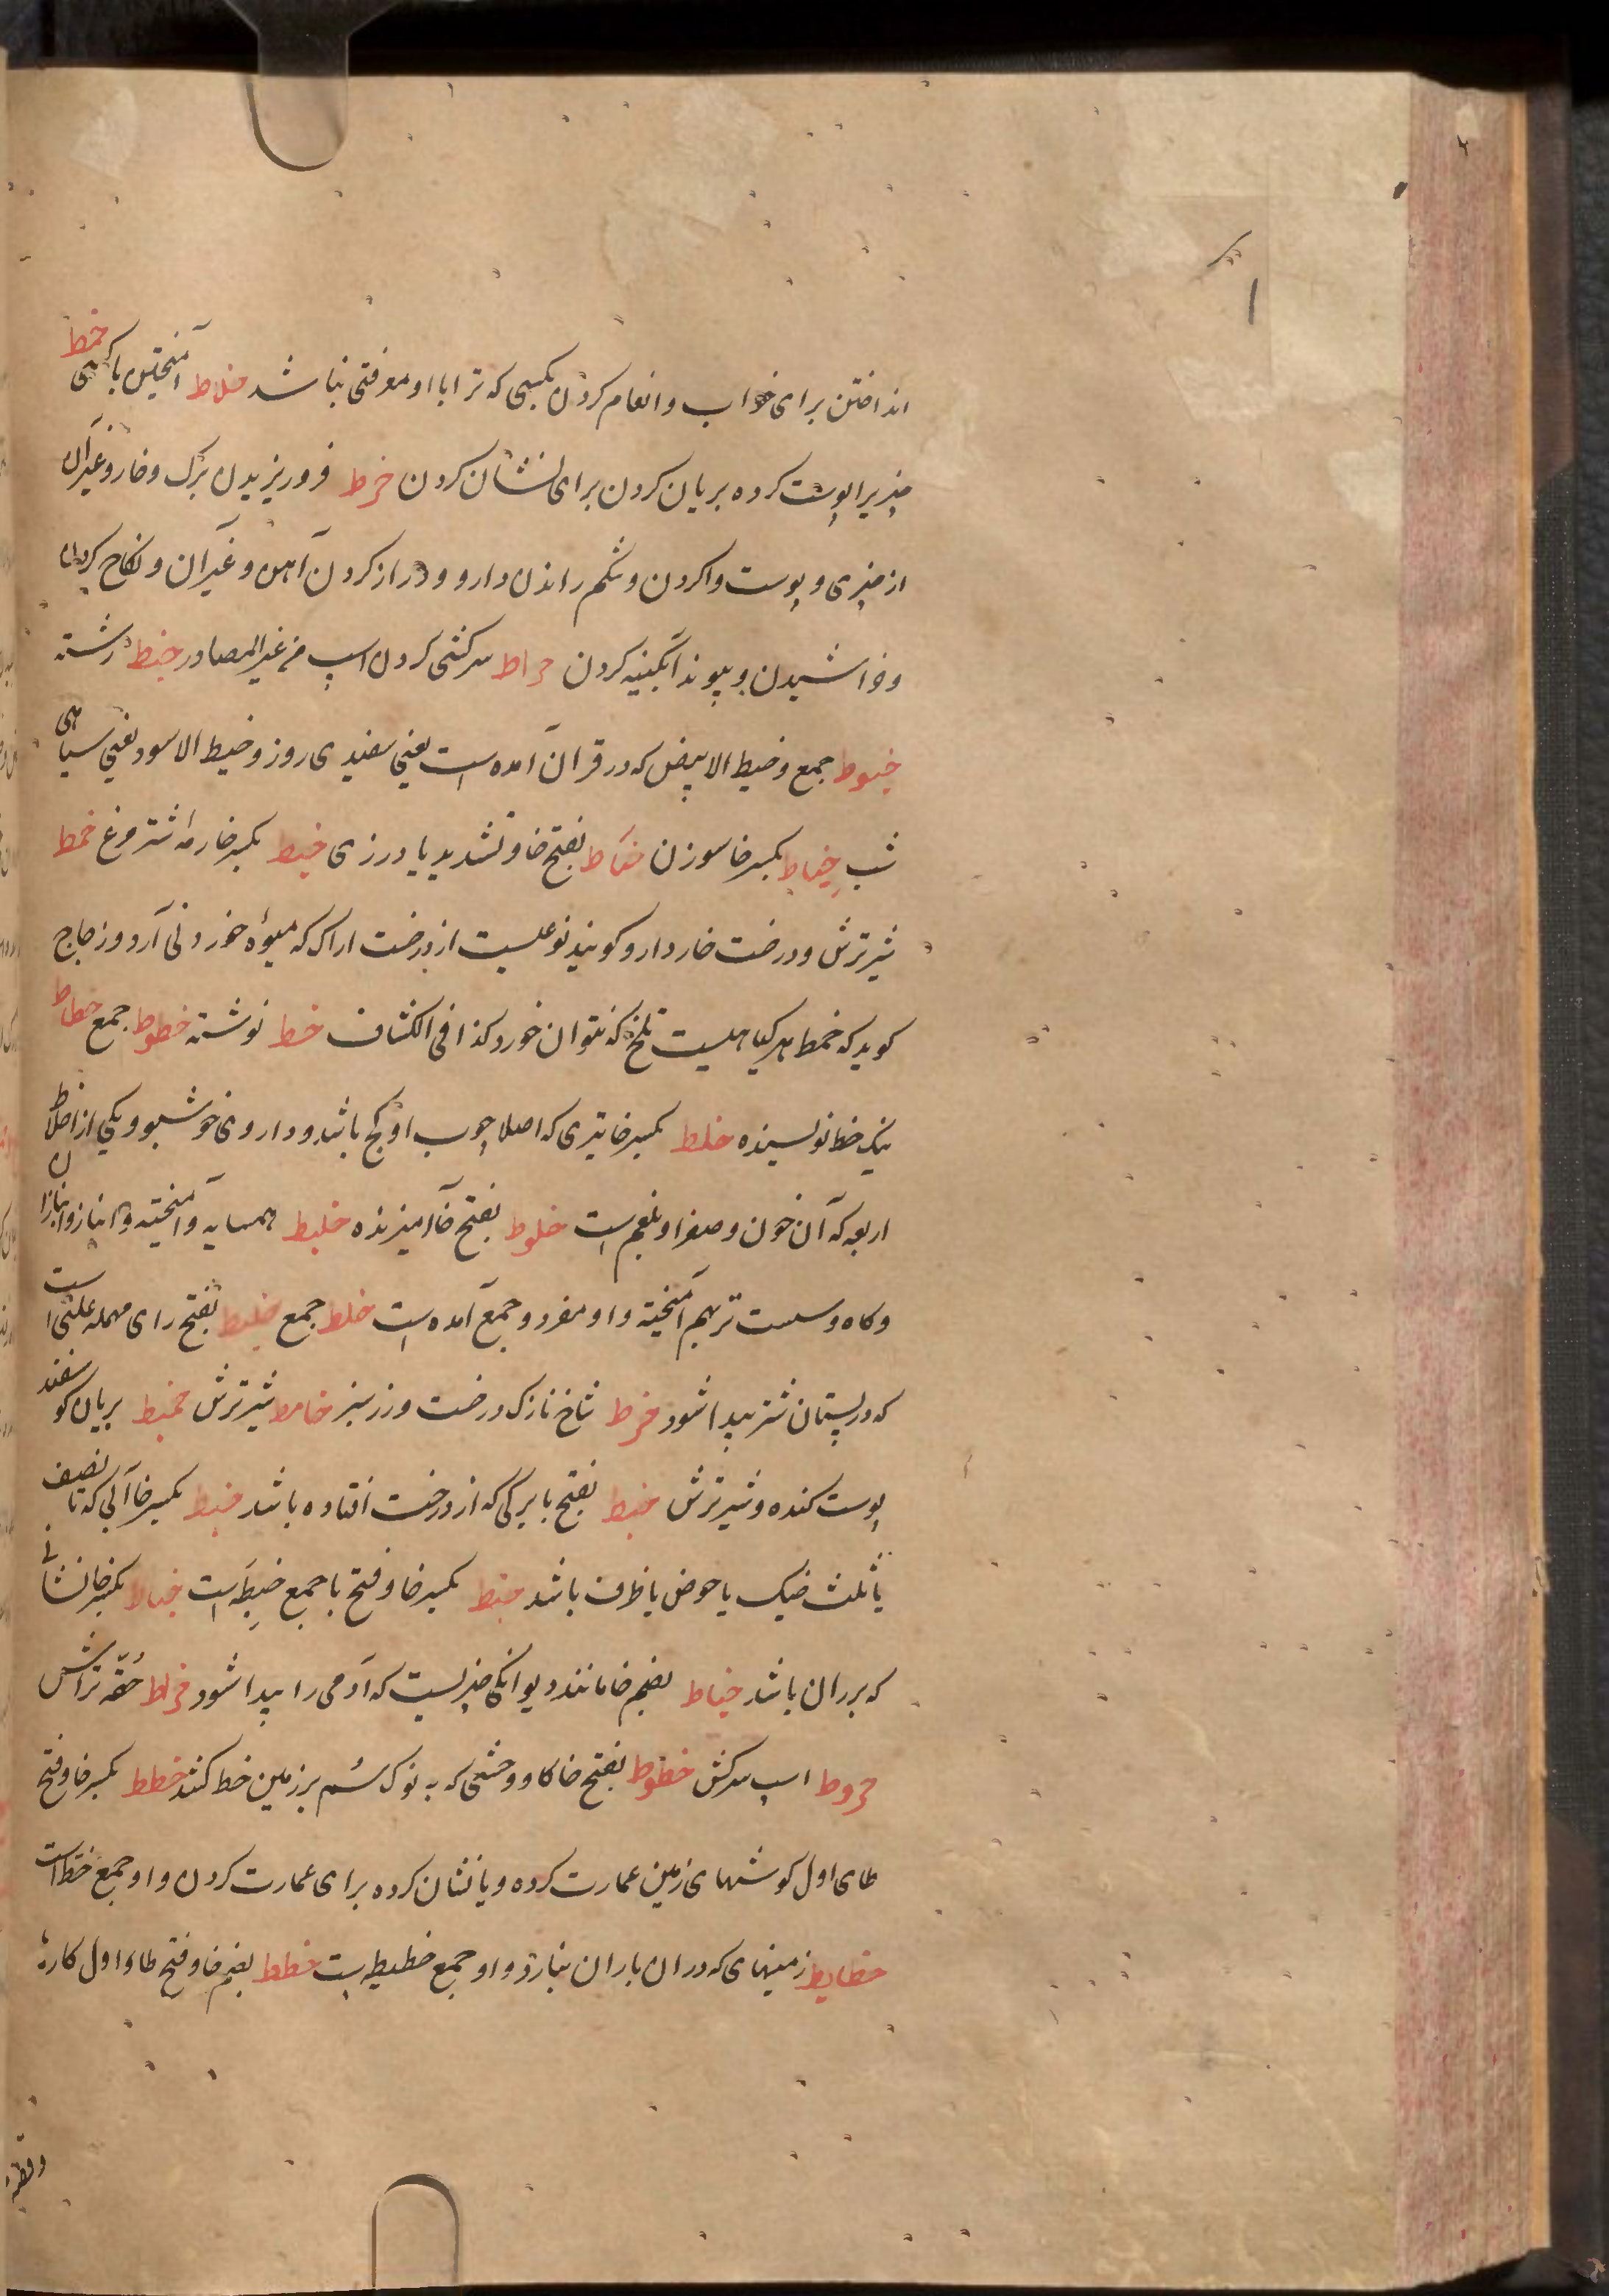 انداختن برای خواب و انعام کردن بکسی که ترا با او معرفتی نباشد خلاط آمیختن با کسی خمط
چیزیرا پوست کرده بریان کردن برای نشان کردن خرط فرو ریزیدن برک و خار و غیر آن
از چیزی و پوست وا کردن و شکم راندن دارو و دراز کردن آهن و غیر آن و نکاح کردن
و خراشیدن و پیوند آبکینه کردن خراط سرکشی کردن اسپ من غیر المصادر خیط رشته
خیوط جمع و خیط الابیض که در قران آمده است یعنی سفیدی روز و خیط الاسود یعنی سیاهی
شب خیاط بکسر خا سوزن خیّاط بفتح خا و تشدید یا درزی خیط بکسر خا رمه اشتر مرغ خمط
شیر ترش و درخت خاردار و کویند نوعیست از درخت اراک که میوۀ خوردنی آرد و زجاج
کوید که خمط هر کیاهیست تلخ که نتوان خورد کذا فی الکشاف خط نوشته خطوط جمع خطاط
نیک خط نویسنده خلط بکسر خا تیری که اصلا چوب او کج باشد و داروی خوشبو و یکی از اخلاط
اربعه که آن خون و صفرا و بلغم است خلوط بفتح خا آمیزنده خلیط همسایه و آمیخته و انباز و انبازان
و کاه و سست تر بهم آمیخته و او مفرد و جمع آمده است خلط جمع خلیط بفتح رای مهمله علتی است
که در پستان شتر پیدا شود خرط شاخ نازک درخت و رز سبز خامط شیر ترش خمیط بریان کوسفند
پوست کنده و شیر ترش خبط بفتح با برکی که از درخت افتاده باشد خبط بکسر خا آبی که تا نصف
یا ثلث خیک یا حوض یا ظرف باشد خبط بکسر خا و فتح با جمع خبطه است خباط بکسر خا نشانی
که بر ران باشد خباط بضم خا مانند دیوانکی چیزیست که آدمی را پیدا شود خراط حقّه تراش
خروط اسپ سرکش خطوط بفتح خا کاو وحشی که به نوک سُم بر زمین خط کشد خطط بکسر خا و فتح
طای اول کوشهای زمین عمارت کرده و یا نشان کرده برای عمارت کردن و او جمع خطه است
خطایط زمینهای که در ان باران نبارد و او جمع خطیطه است خطط بضم خا و فتح طاء اول کارها